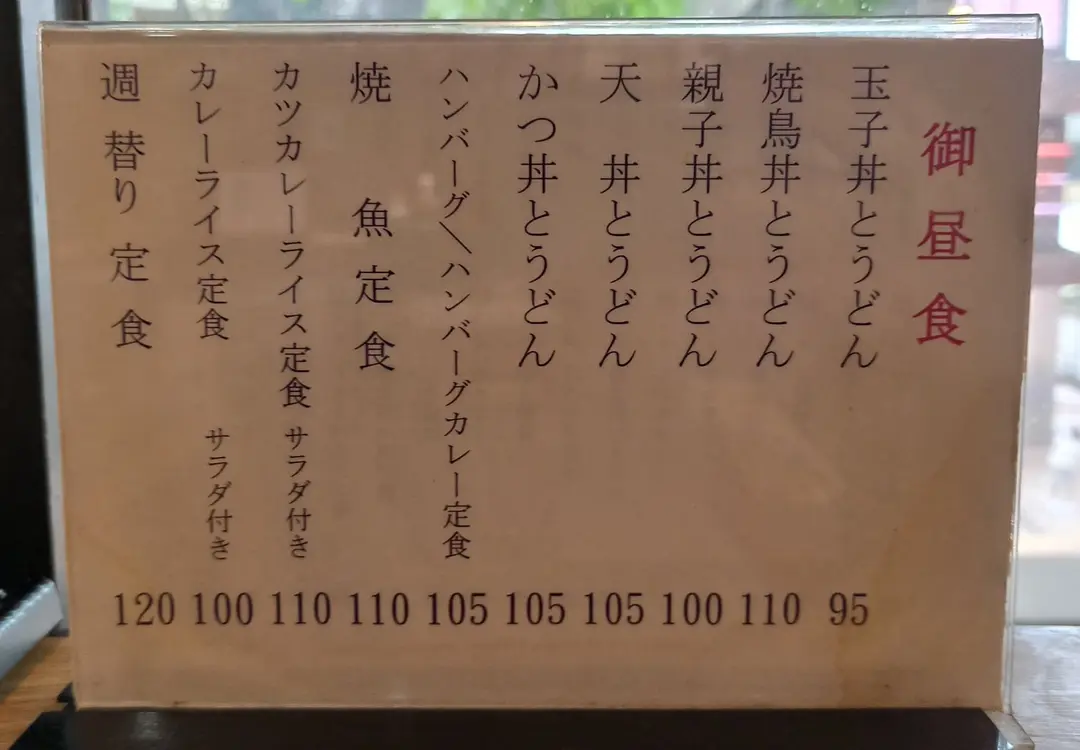 御昼食
玉子丼とうどん 95
焼鳥丼とうどん 110
親子丼とうどん 100
天 丼とうどん 105
かつ丼とうどん 105
ハンバーグ\ハンバーグカレー定食 105
焼 魚定食 110
カツカレーライス定食 サラダ付き 110
カレーライス定食 サラダ付き 100
週替り定食 120